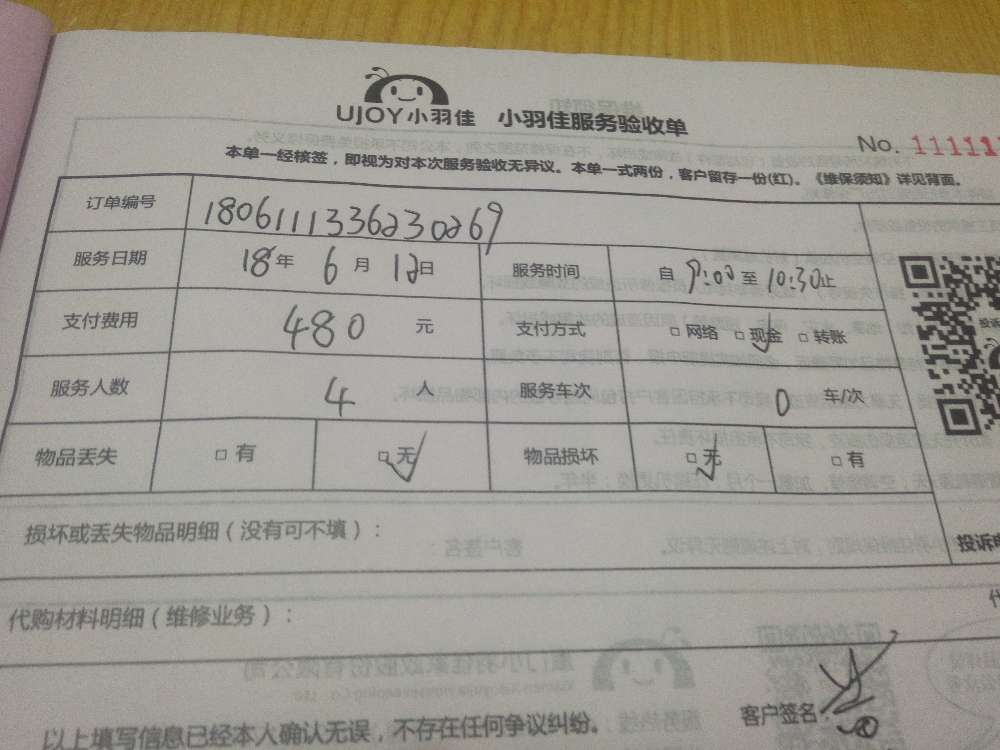 UJOY小羽佳 小羽佳服务验收单
No. 11111
本单一经核签，即视为对本次服务验收无异议。本单一式两份，客户留存一份(红)。《维保须知》详见背面。
订单编号 1806111336230269
服务日期 18年 6月 12日 服务时间 自 9:00 至 10:30止
支付费用 480 元 支付方式 □ 网络 □ 现金 □ 转账
服务人数 4 人 服务车次 0 车/次
物品丢失 □ 有 □ 无 物品损坏 □ 无 □ 有
损坏或丢失物品明细（没有可不填）：
投诉
代购材料明细（维修业务）：
以上填写信息已经本人确认无误，不存在任何争议纠纷。 客户签名：